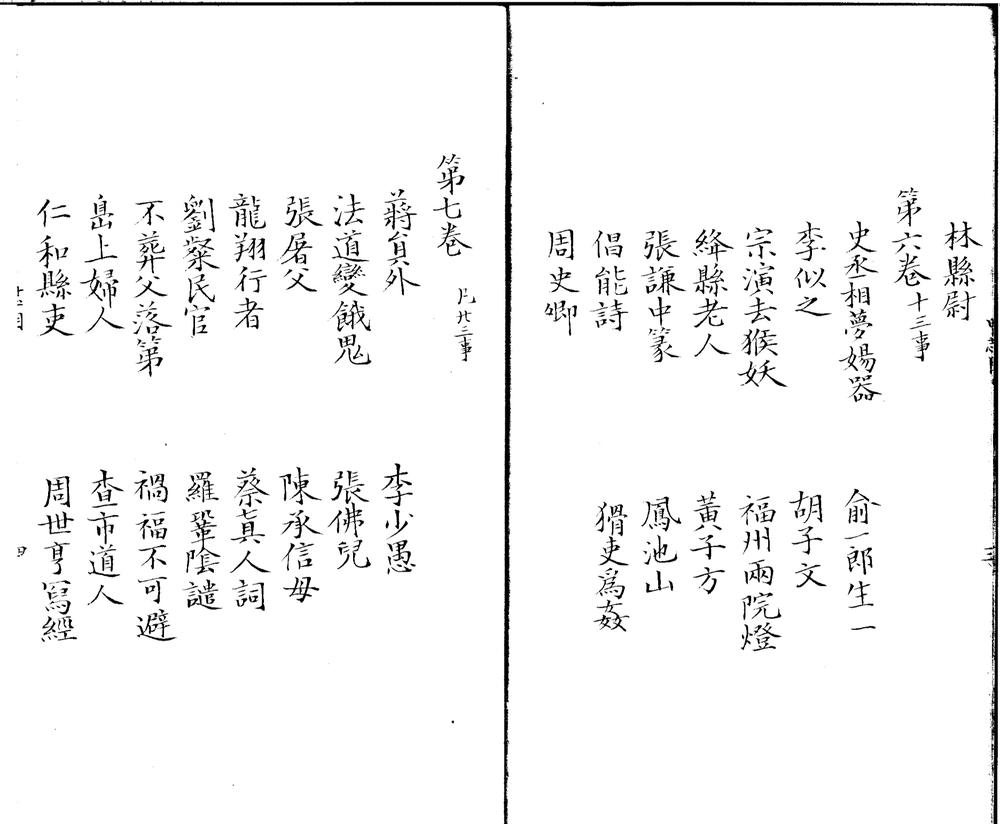 林縣尉
第六卷 十三事
史丞相夢婸器 俞一郎生一
李似之 胡子文
宗演去猴妖 福州兩院燈
絳縣老人 黃子方
張謙中篆 鳳池山
倡能詩 猾吏爲姦
周史卿
第七卷 凡廿三事
蔣貟外 李少愚
法道變餓鬼 張佛兒
張屠父 陳承信母
龍翔行者 蔡眞人詞
劉粲民官 羅鞏陰譴
不葬父落第 禍福不可避
島上婦人 查市道人
仁和縣吏 周世亨寫經